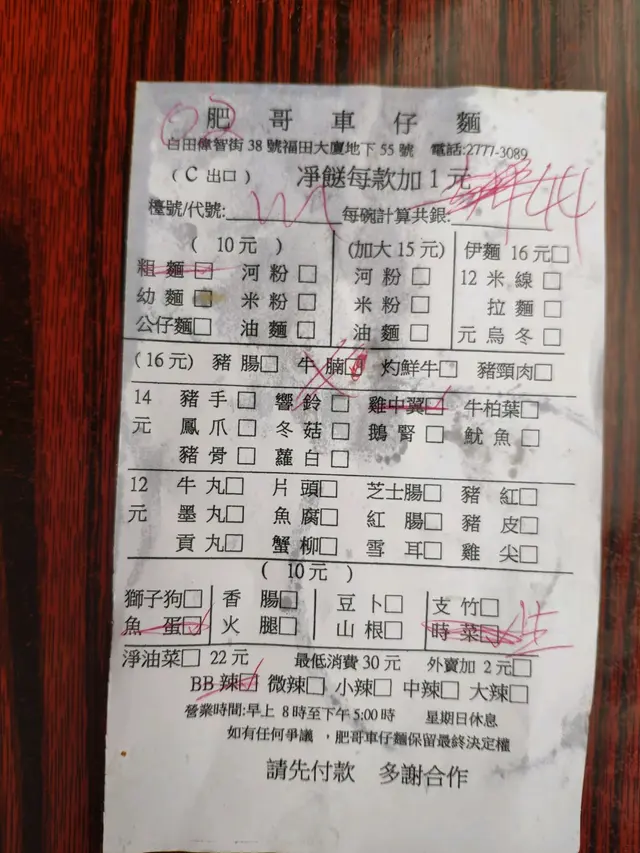 肥哥車仔麵
白田偉智街 38 號福田大廈地下 55 號 電話:2777-3089
(C 出口) 凈餸每款加 1 元
檯號/代號:________ 每碗計算共銀:________ 44
(10 元) (加大 15 元) 伊麵 16 元□
粗麵□ 河粉□ 河粉□ 12 米線□
幼麵□ 米粉□ 米粉□ 拉麵□
公仔麵□ 油麵□ 油麵□ 元 烏冬□
(16 元) 豬腸□ 牛腩□ 灼鮮牛□ 豬頸肉□
14 豬手□ 響鈴□ 雞中翼□ 牛柏葉□
元 鳳爪□ 冬菇□ 鵝腎□ 魷魚□
豬骨□ 蘿白□
12 牛丸□ 片頭□ 芝士腸□ 豬紅□
元 墨丸□ 魚腐□ 紅腸□ 豬皮□
貢丸□ 蟹柳□ 雪耳□ 雞尖□
(10 元)
獅子狗□ 香腸□ 豆卜□ 支竹□
魚蛋□ 火腿□ 山根□ 時菜□
淨油菜□ 22 元 最低消費 30 元 外賣加 2 元□
BB 辣□ 微辣□ 小辣□ 中辣□ 大辣□
營業時間:早上 8 時至下午 5:00 時 星期日休息
如有任何爭議 ,肥哥車仔麵保留最終決定權
請先付款 多謝合作